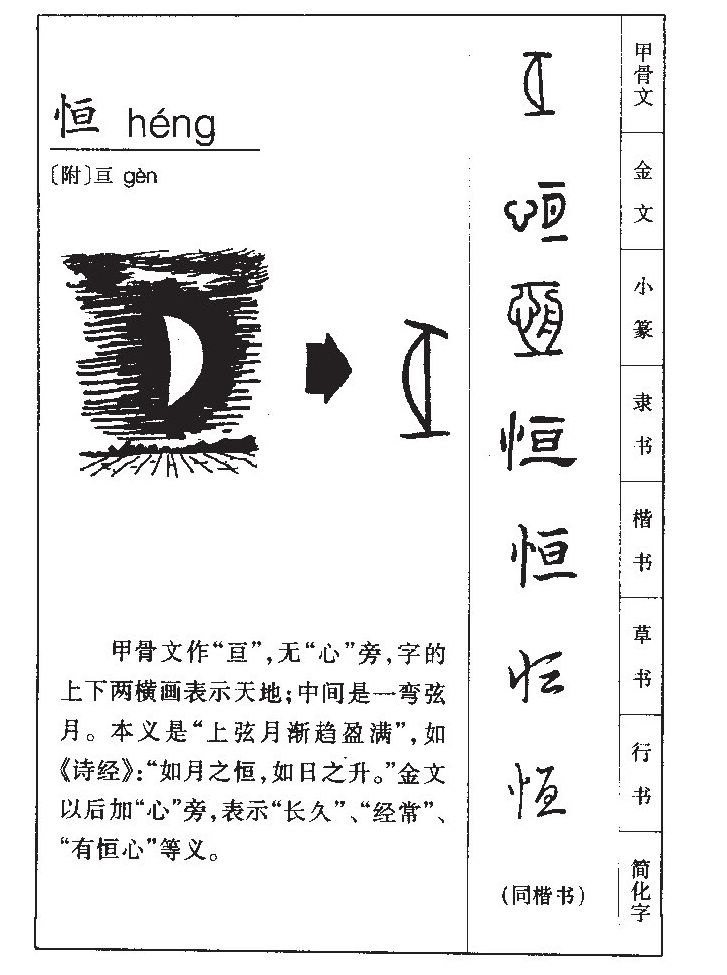 恒 héng
〔附〕亘 gèn
甲骨文作“亘”,无“心”旁,字的
上下两横画表示天地;中间是一弯弦
月。本义是“上弦月渐趋盈满”,如
《诗经》:“如月之恒,如日之升。”金文
以后加“心”旁,表示“长久”、“经常”、
“有恒心”等义。
亘
甲骨文
恒
金文
恒
小篆
恒
隶书
恒
楷书
恒
草书
恒
行书
(同楷书)
简化字